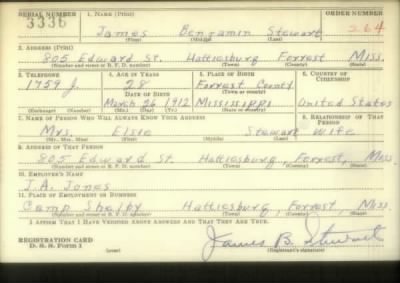 SERIAL NUMBER 1. NAME (Print) ORDER NUMBER
3336 James Benjamin Stewart 264
(First) (Middle) (Last)
2. ADDRESS (Print)
805 Edward St. Hattiesburg Forrest Miss.
(Number and street or R. F. D. number) (Town) (County) (State)
3. TELEPHONE 4. AGE IN YEARS 5. PLACE OF BIRTH 6. COUNTRY OF CITIZENSHIP
1759 J. 28 Forrest County
DATE OF BIRTH (Town or county)
March 26 1912 Mississippi United States
(Exchange) (Number) (Mo.) (Day) (Yr.) (State or country)
7. NAME OF PERSON WHO WILL ALWAYS KNOW YOUR ADDRESS 8. RELATIONSHIP OF THAT PERSON
Mrs. Elsie Stewart Wife
(Mr., Mrs., Miss) (First) (Middle) (Last)
9. ADDRESS OF THAT PERSON
805 Edward St. Hattiesburg, Forrest, Miss.
(Number and street or R. F. D. number) (Town) (County) (State)
10. EMPLOYER'S NAME
J.A. Jones
11. PLACE OF EMPLOYMENT OR BUSINESS
Camp Shelby Hattiesburg, Forrest, Miss.
(Number and street or R. F. D. number) (Town) (County) (State)
I AFFIRM THAT I HAVE VERIFIED ABOVE ANSWERS AND THAT THEY ARE TRUE.
REGISTRATION CARD
D. S. S. Form 1 (over) James B. Stewart
(Registrant's signature)